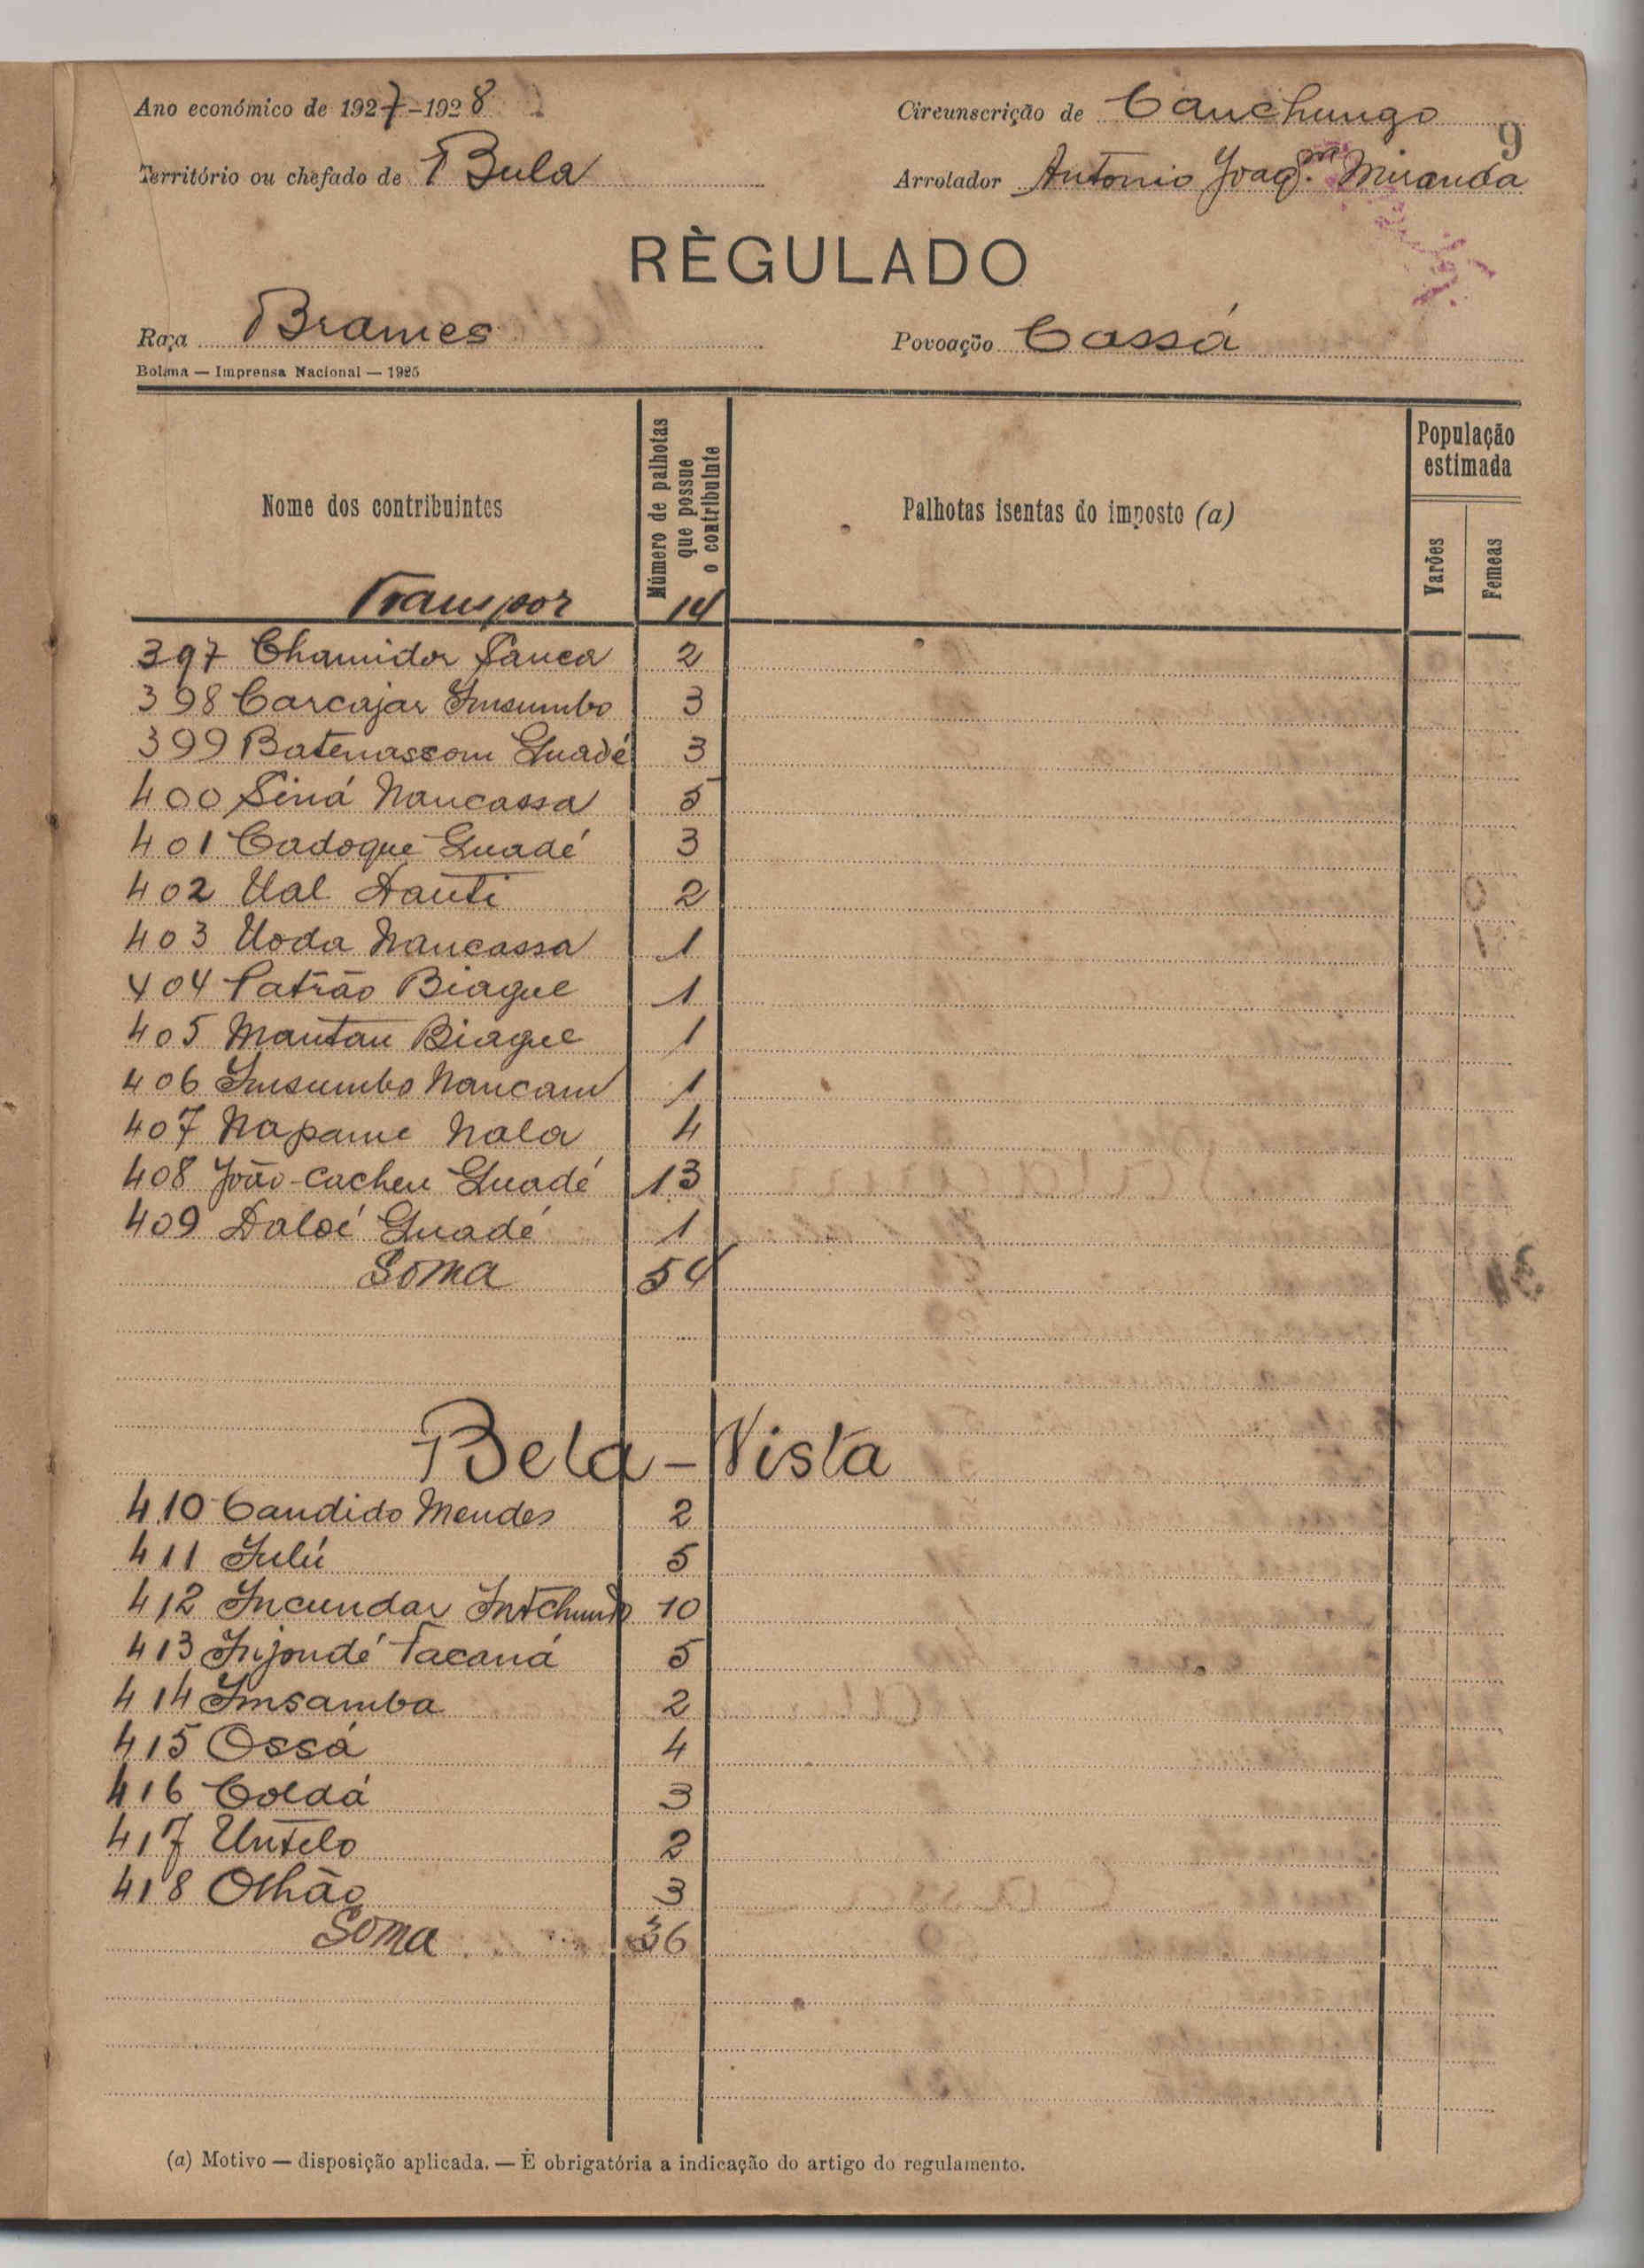 Ano económico de 1927-1928
Circunscrição de Canchungo
9
Território ou chefado de Bula
Arrolador Antonio Joaqm. Miranda
RÈGULADO
Raça Brames
Povoação Cassá
Bolama — Imprensa Nacional — 1925
Nome dos contribuintes
Número de palhotas que possue o contribuinte
Palhotas isentas do imposto (a)
População estimada
Varões
Femeas
Transpor 14
397 Chamidor Sanca 2
398 Carcajar Insumbo 3
399 Batenascom Quadé 3
400 Siná Nancassa 5
401 Cadoque Quadé 3
402 Ual Dauti 2
403 Uoda Nancassa 1
404 Patrão Biague 1
405 Mantau Biague 1
406 Insumbo Nancam 1
407 Napame Nala 4
408 João-Cacheu Quadé 13
409 Daloé Quadé 1
Soma 54
Bela-Vista
410 Candido Mendes 2
411 Julú 5
412 Incundar 10
413 Injondé Tacaná 5
414 Imsamba 2
415 Ossá 4
416 Coldá 3
417 Untelo 2
418 Olhão 3
Soma 36
(a) Motivo — disposição aplicada. — È obrigatória a indicação do artigo do regulamento.